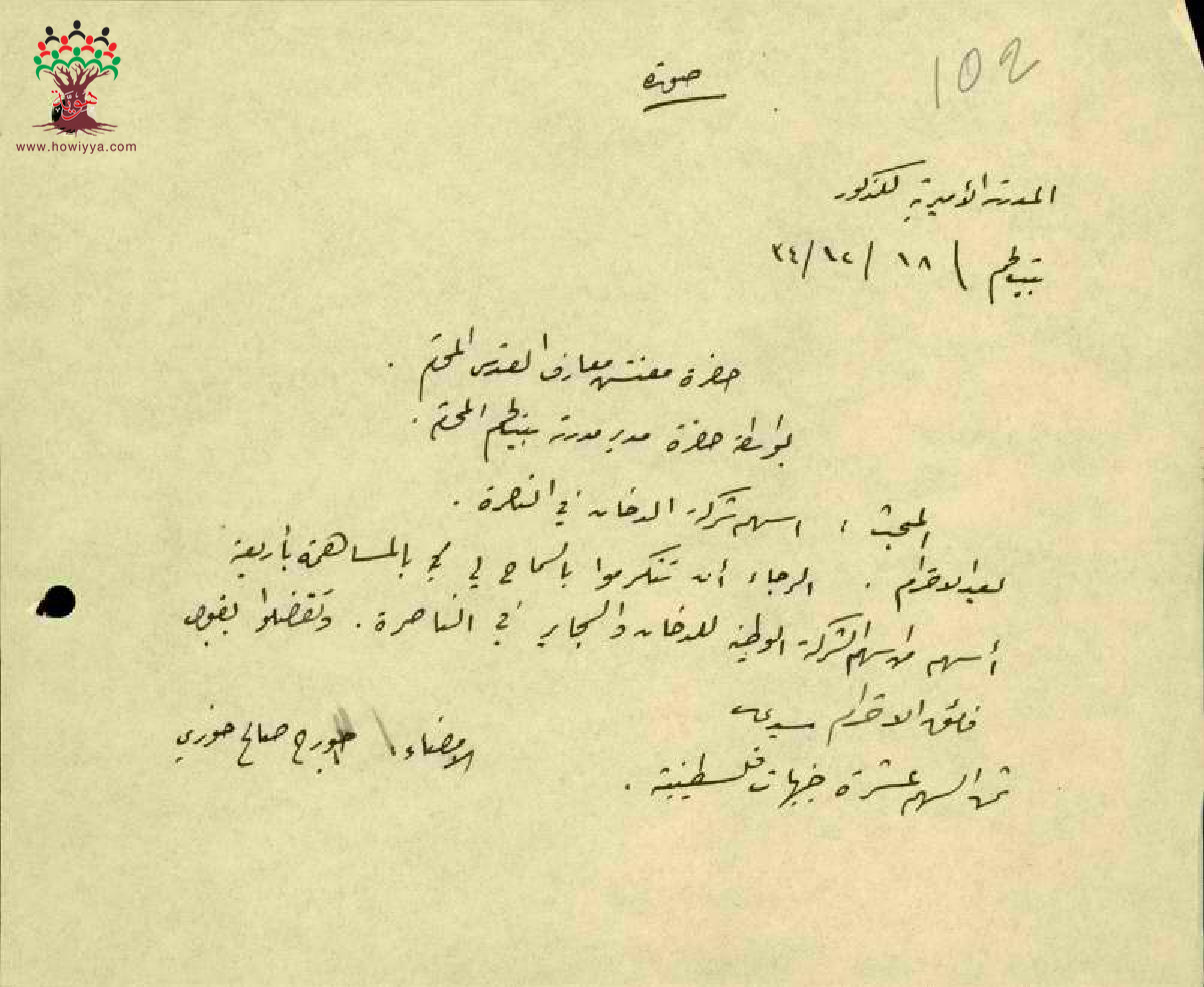 هوية
www.howiyya.com
102
صورة
المدرسة الأميرية للذكور
بيت لحم / ١٨ / ١٢/ ٣٤
حضرة مفتش معارف القدس المحترم .
بواسطة حضرة مدير مدرسة بيت لحم المحترم .
المبحث : اسهم شركة الدخان في الناصرة .
بعد الاحترام . الرجاء أن تتكرموا بالسماح لي بالمساهمة بأربعة
أسهم من اسهم الشركة الوطنية للدخان والسجاير في الناصرة . وتفضلوا بقبول
فائق الاحترام سيدي
الامضاء، جورج صالح خوري
ثمن السهم عشرة جنيهات فلسطينية .